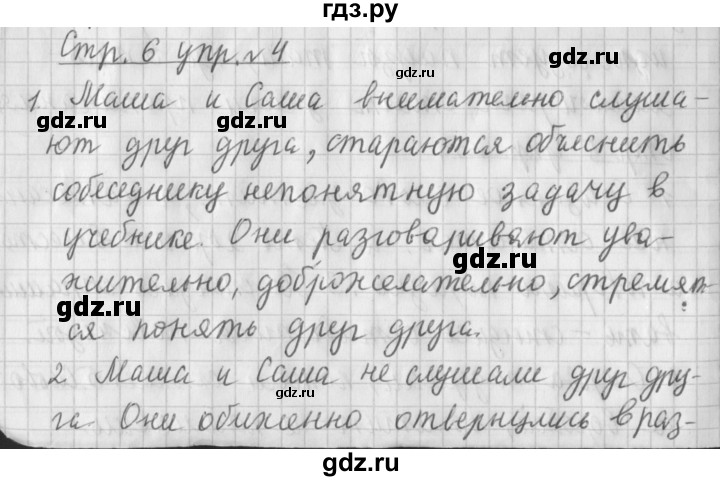 гдз.ру
Стр. 6 упр. №4
1. Маша и Саша внимательно слуша-
ют друг друга, стараются объяснить
собеседнику непонятную задачу в
учебнике. Они разговаривают ува-
жительно, доброжелательно, стремят-
ся понять друг друга.
2 Маша и Саша не слушали друг дру-
га. Они обиженно отвернулись в раз-
gdz.ru
gdz.ru
gdz.ru
gdz.ru
gdz.ru
gdz.ru
gdz.ru
gdz.ru
gdz.ru